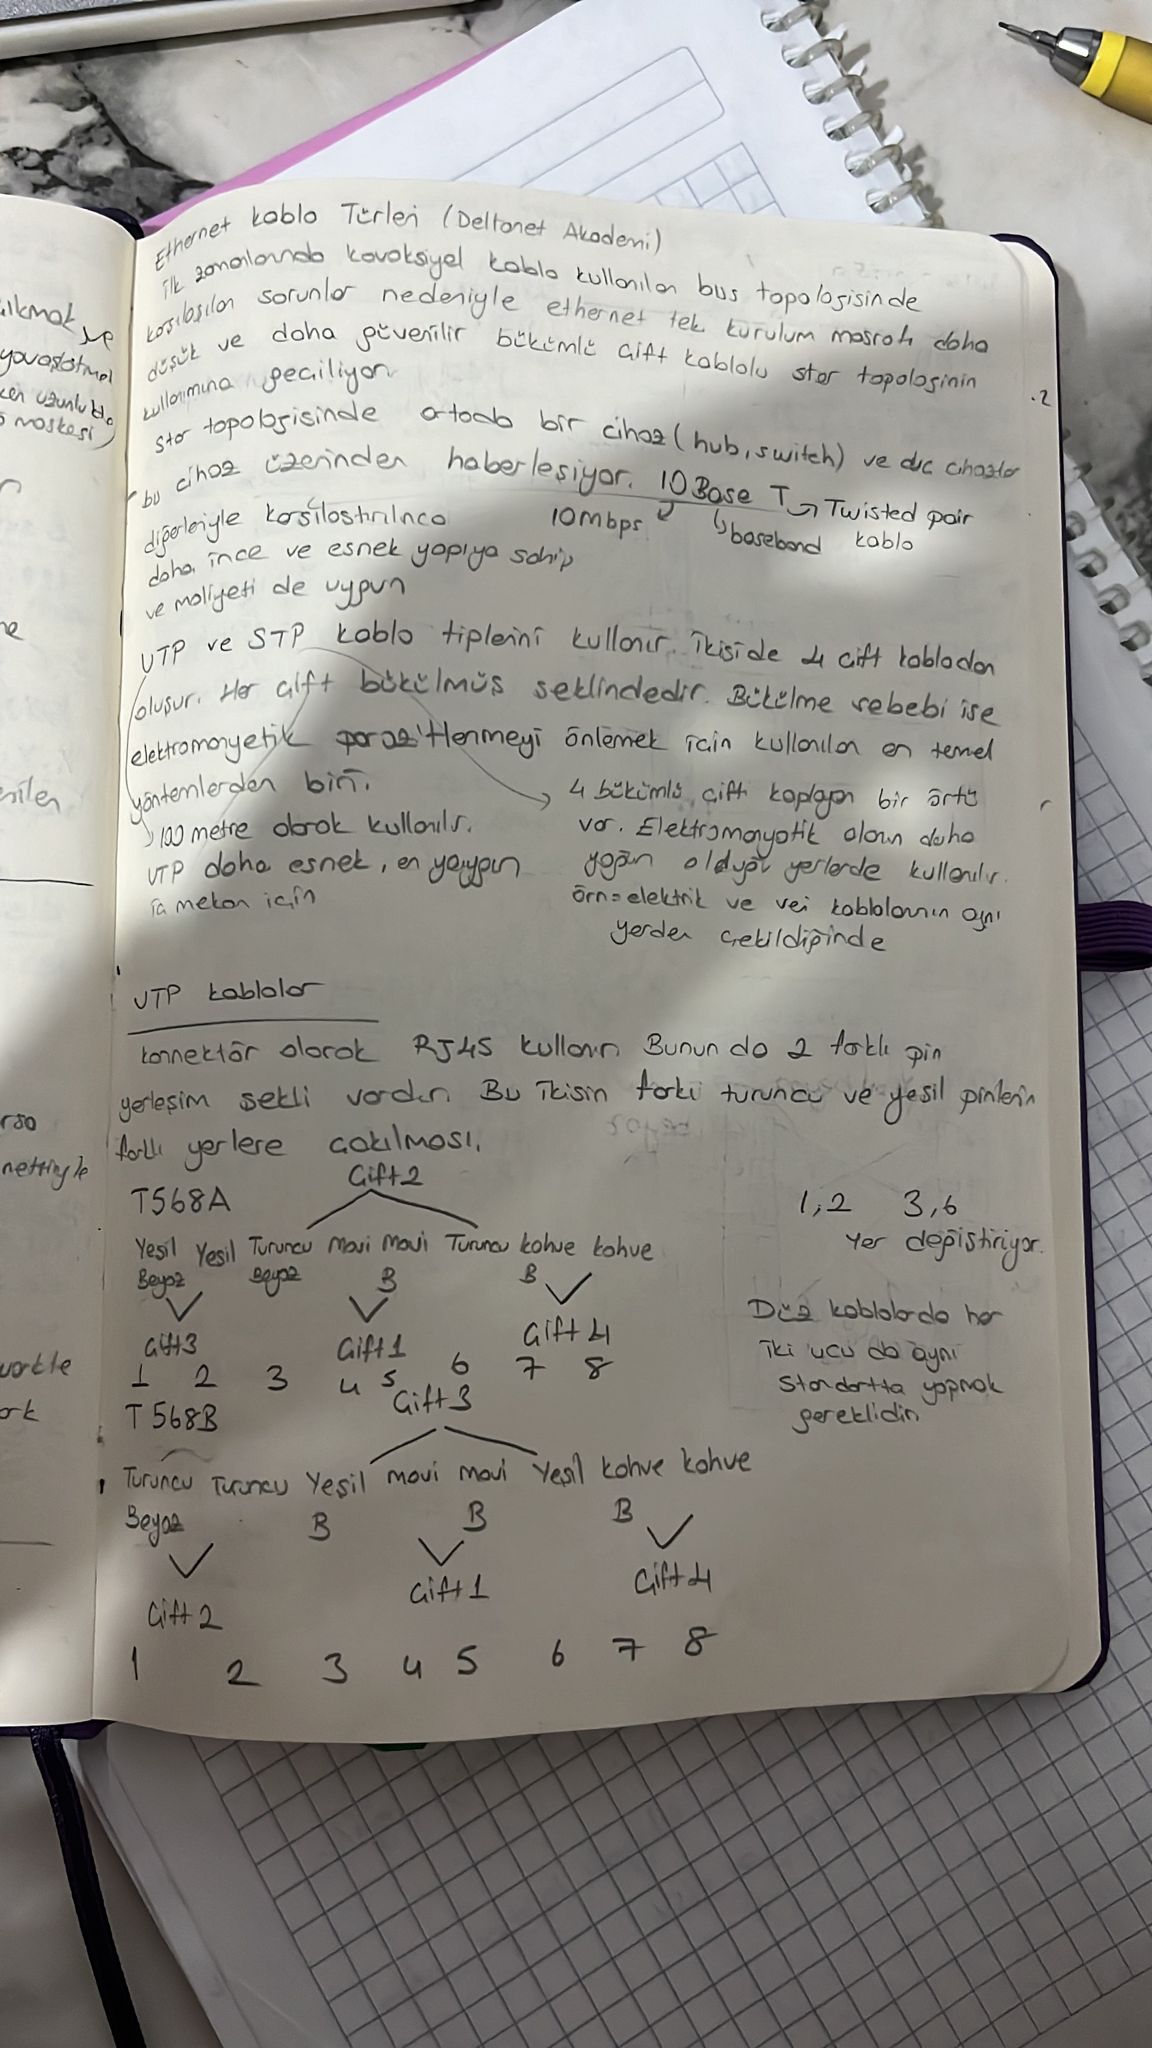 Ethernet kablo Türleri (Deltanet Akademi)
ilk zamanlarında kovoksiyel kablo kullanılan bus topolojisinde
karşılaşılan sorunlar nedeniyle ethernet tek kurulum masrafı daha
düşük ve daha güvenilir bükümlü çift kablolu star topolojinin
kullanımına geçiliyor.
star topolojisinde ortada bir cihaz (hub, switch) ve dıç cihazlar
bu cihaz üzerinden haberleşiyor. 10 Base T → Twisted pair
kablo
10Mbps
baseband
diğerleriyle karşılaştırılınca
daha ince ve esnek yapıya sahip
ve maliyeti de uygun
UTP ve STP kablo tiplerini kullanır. İkiside 4 çift kablodan
oluşur. Her çift bükülmüş şeklindedir. Bükülme sebebi ise
elektromanyetik parazitlenmeyi önlemek için kullanılan en temel
yöntemlerden biri.
100 metre olarak kullanılır.
UTP daha esnek, en yaygın
iç mekan için
4 bükümlü çifti kaplayan bir örtü
var. Elektromanyetik alanın daha
yoğun olduğu yerlerde kullanılır.
örn=elektrik ve veri kablolarının aynı
yerden çekildiğinde
UTP kablolar
konnektör olarak RJ45 kullanır. Bunun da 2 farklı pin
yerleşim şekli vardır. Bu ikisin farkı turuncu ve yeşil pinlerin
farklı yerlere çakılması.
Çift2
T568A
Yeşil Yeşil Turuncu Mavi Mavi Turuncu kahve kahve
Beyaz Beyaz B B
Çift3 Çift1 Çift4
1 2 3 4 5 6 7 8
1,2 3,6
Yer değiştiriyor.
Düz kablolarda her
iki ucu da aynı
standartta yapmak
gereklidir.
Çift3
T568B
Turuncu Turuncu Yeşil mavi mavi Yeşil kahve kahve
Beyaz B B B
Çift2 Çift1 Çift4
1 2 3 4 5 6 7 8